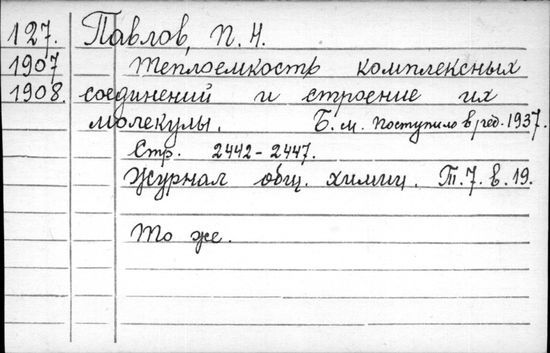 127. Павлов, П. Н.
1907 Теплоемкость комплексных
1908. соединений и строение их
молекулы. Б. м. поступило в ред. 1937.
Стр. 2442-2447.
Журнал общ. химии. Т. 7. в. 19.
То же.